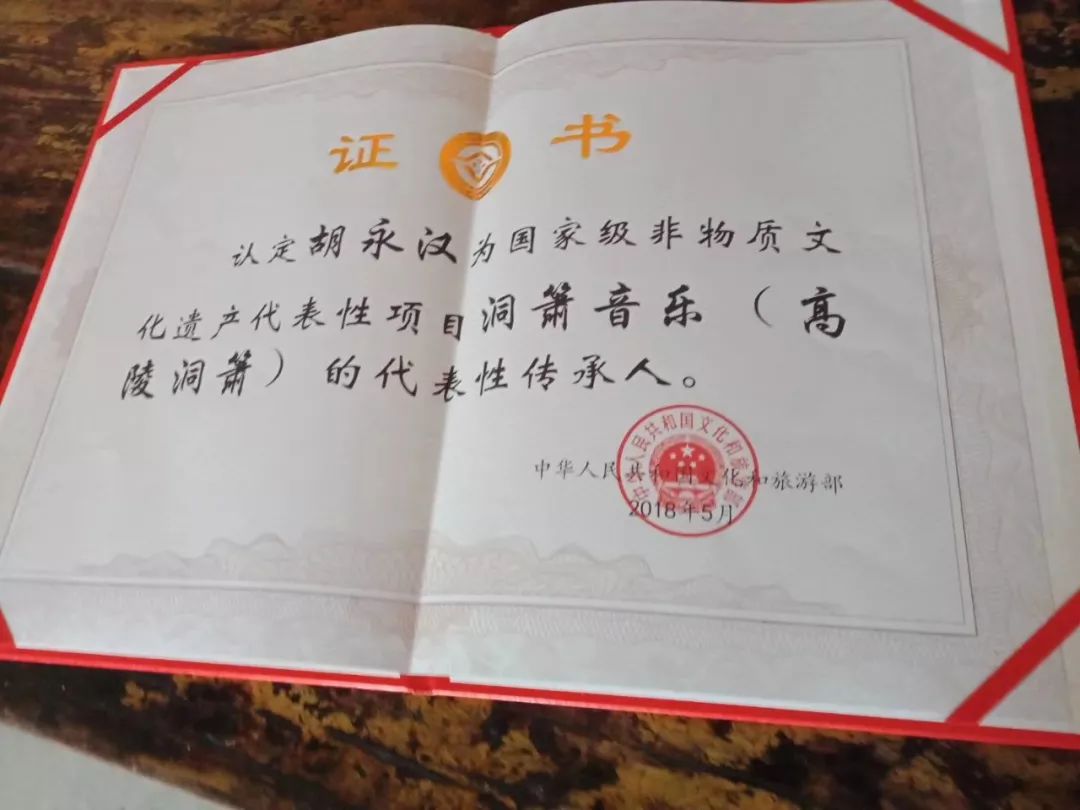 证书
认定胡永汉为国家级非物质文
化遗产代表性项目洞箫音乐（高
陵洞箫）的代表性传承人。
中华人民共和国文化和旅游部
2018年5月
中华人民共和国文化和旅游部